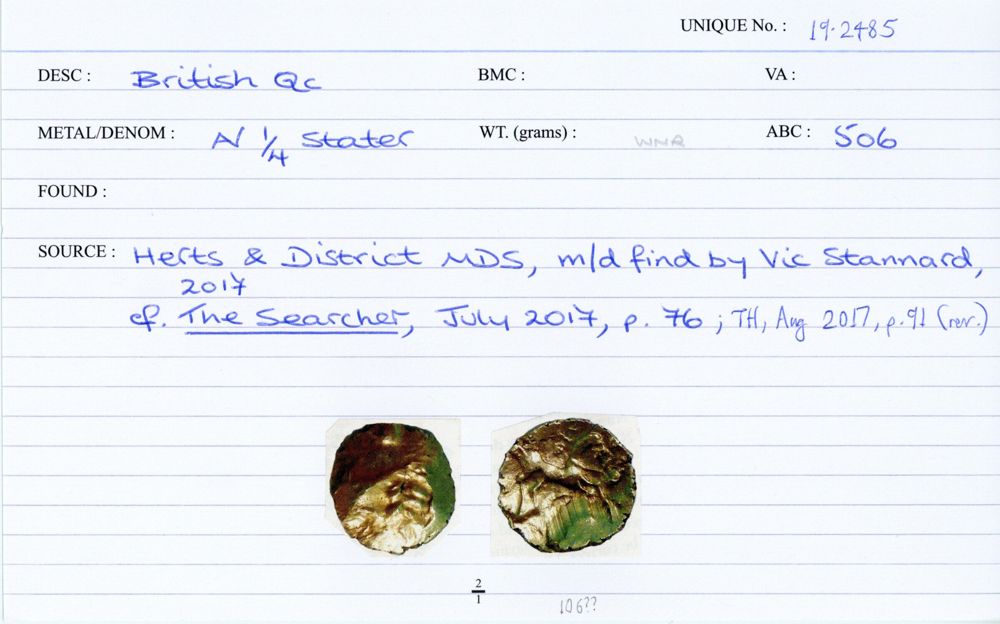 UNIQUE No. : 19.2485
DESC : British Qc BMC : VA :
METAL/DENOM : A/ 1/4 Stater WT. (grams) : WNR ABC : 506
FOUND :
SOURCE : Herts & District MDS, m/d find by Vic Stannard,
2017
cf. The Searcher, July 2017, p. 76 ; TH, Aug 2017, p.91 (rev.)
2
1
106??